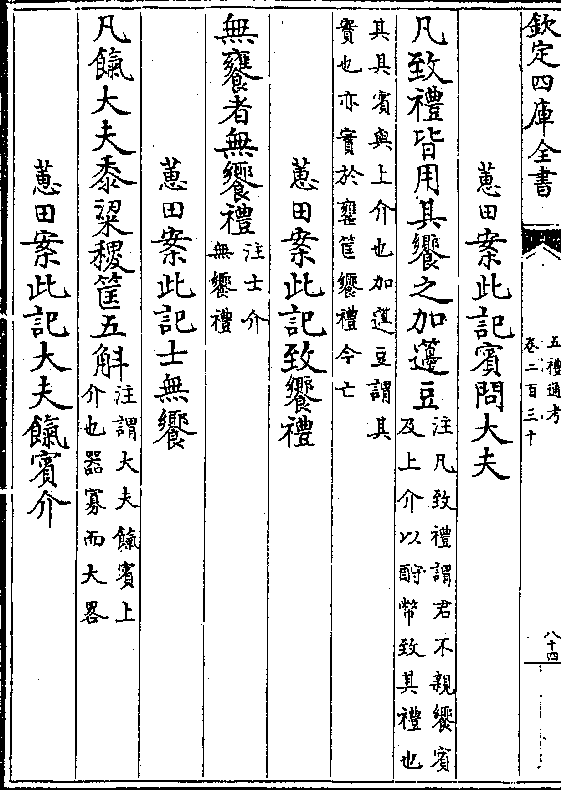 欽定四庫全書
五禮通考
卷二百三十
八十四
蕙田案此記賓問大夫
凡致禮皆用其饗之加籩豆
注凡致禮謂君不親饗賓
及上介以酬幣致其禮也
其其賓與上介也加籩豆謂其
實也亦實於甕筐饗禮今亡
蕙田案此記致饗禮
無饔者無饗禮
注士介
無饗禮
蕙田案此記士無饗
凡餼大夫黍粱稷筐五斛
注謂大夫餼賓上
介也器寡而大畧
蕙田案此記大夫餼賓介